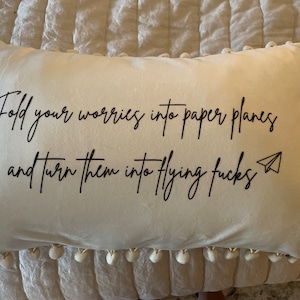 Fold your worries into paper planes
and turn them into flying fucks